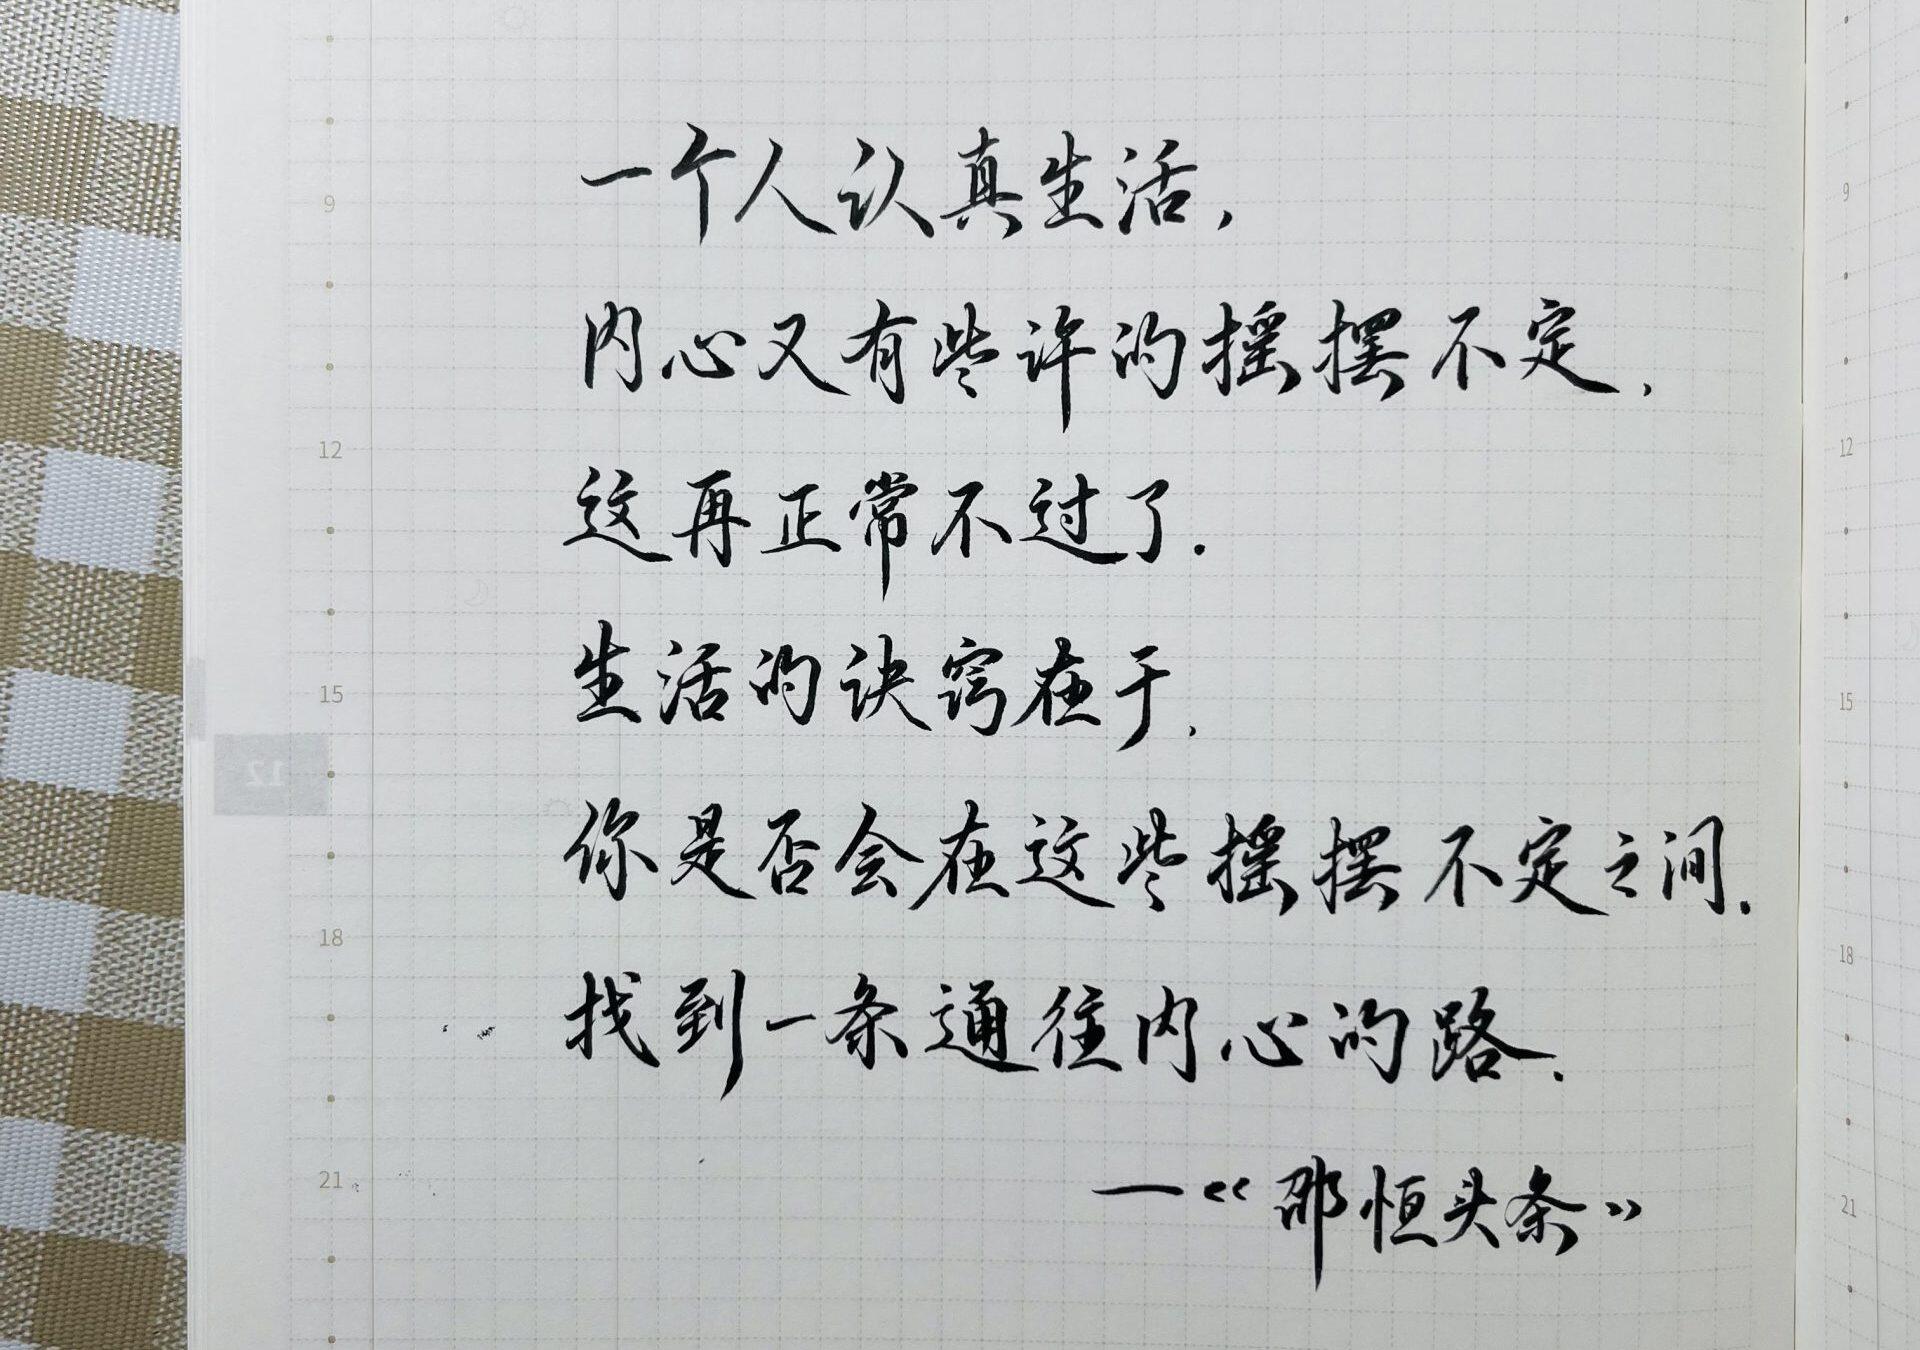 一个人认真生活,
内心又有些许的摇摆不定,
这再正常不过了.
生活的诀窍在于,
你是否会在这些摇摆不定之间.
找到一条通往内心的路.
—《邵恒头条》
9
12
15
18
21
12
9
12
15
18
21